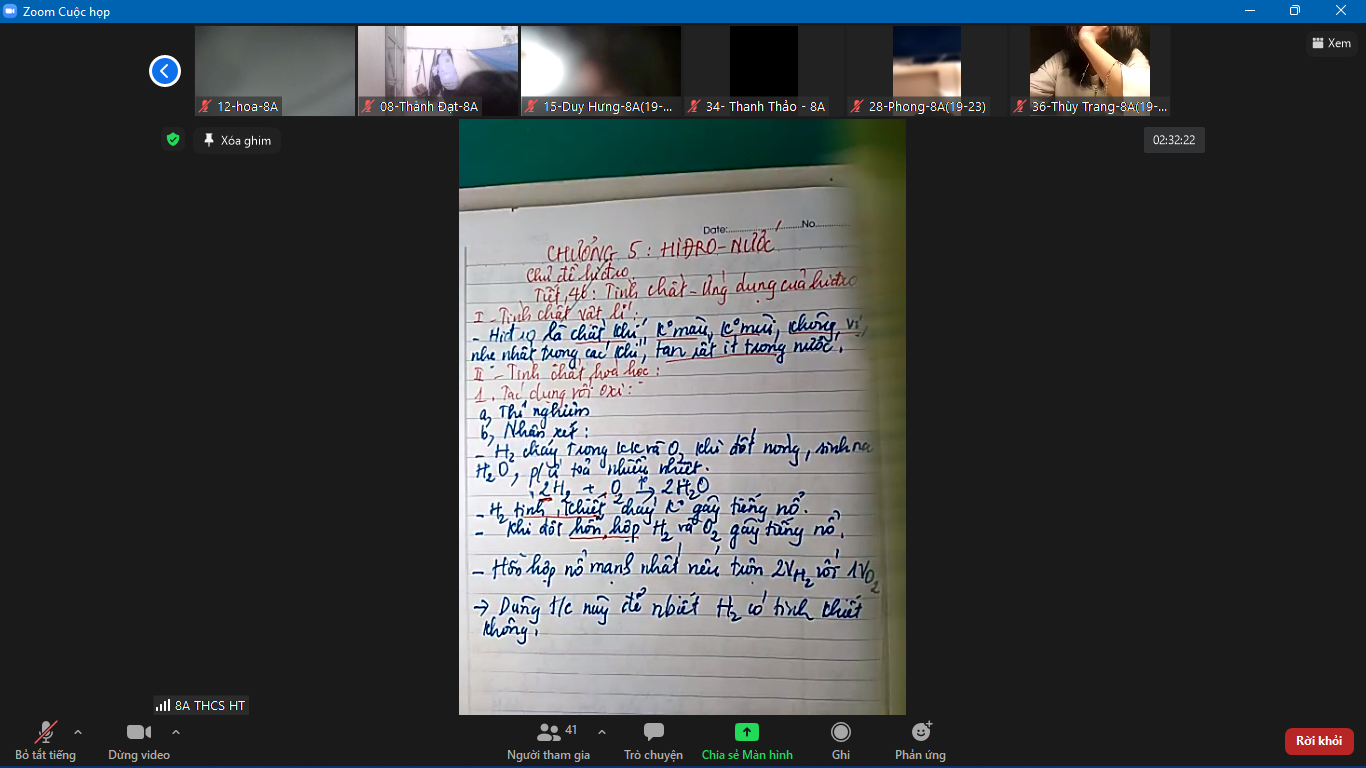 Zoom Cuộc họp
Xem
12-hoa-8A
08-Thành Đạt-8A
15-Duy Hưng-8A(19-...
34- Thanh Thảo - 8A
28-Phong-8A(19-23)
36-Thùy Trang-8A(19-...
Xóa ghim
02:32:22
Date:....................No............
CHƯƠNG 5 : HIĐRO-NƯỚC
Chủ đề hiđro.
Tiết 46 : Tính chất - Ứng dụng của hiđro
I - Tính chất vật lí :
- Hiđro là chất khí, K° màu, K° mùi, không vị,
nhẹ nhất trong các khí, tan rất ít trong nước.
II - Tính chất hoá học :
1. Tác dụng với oxi :
a, Thí nghiệm
b, Nhận xét :
- H₂ cháy trong KK và O₂ khi đốt nóng, sinh ra
H₂O, p/ứ toả nhiều nhiệt.
2H₂ + O₂ t° → 2H₂O
- H₂ tinh khiết cháy K° gây tiếng nổ.
- Khi đốt hỗn hợp H₂ và O₂ gây tiếng nổ.
- Hỗn hợp nổ mạnh nhất nếu trộn 2V H₂ với 1V O₂
→ Dùng t/c này để nbiết H₂ có tinh khiết
không.
8A THCS HT
Bỏ tắt tiếng
Dừng video
41
Người tham gia
Trò chuyện
Chia sẻ Màn hình
Ghi
Phản ứng
Rời khỏi